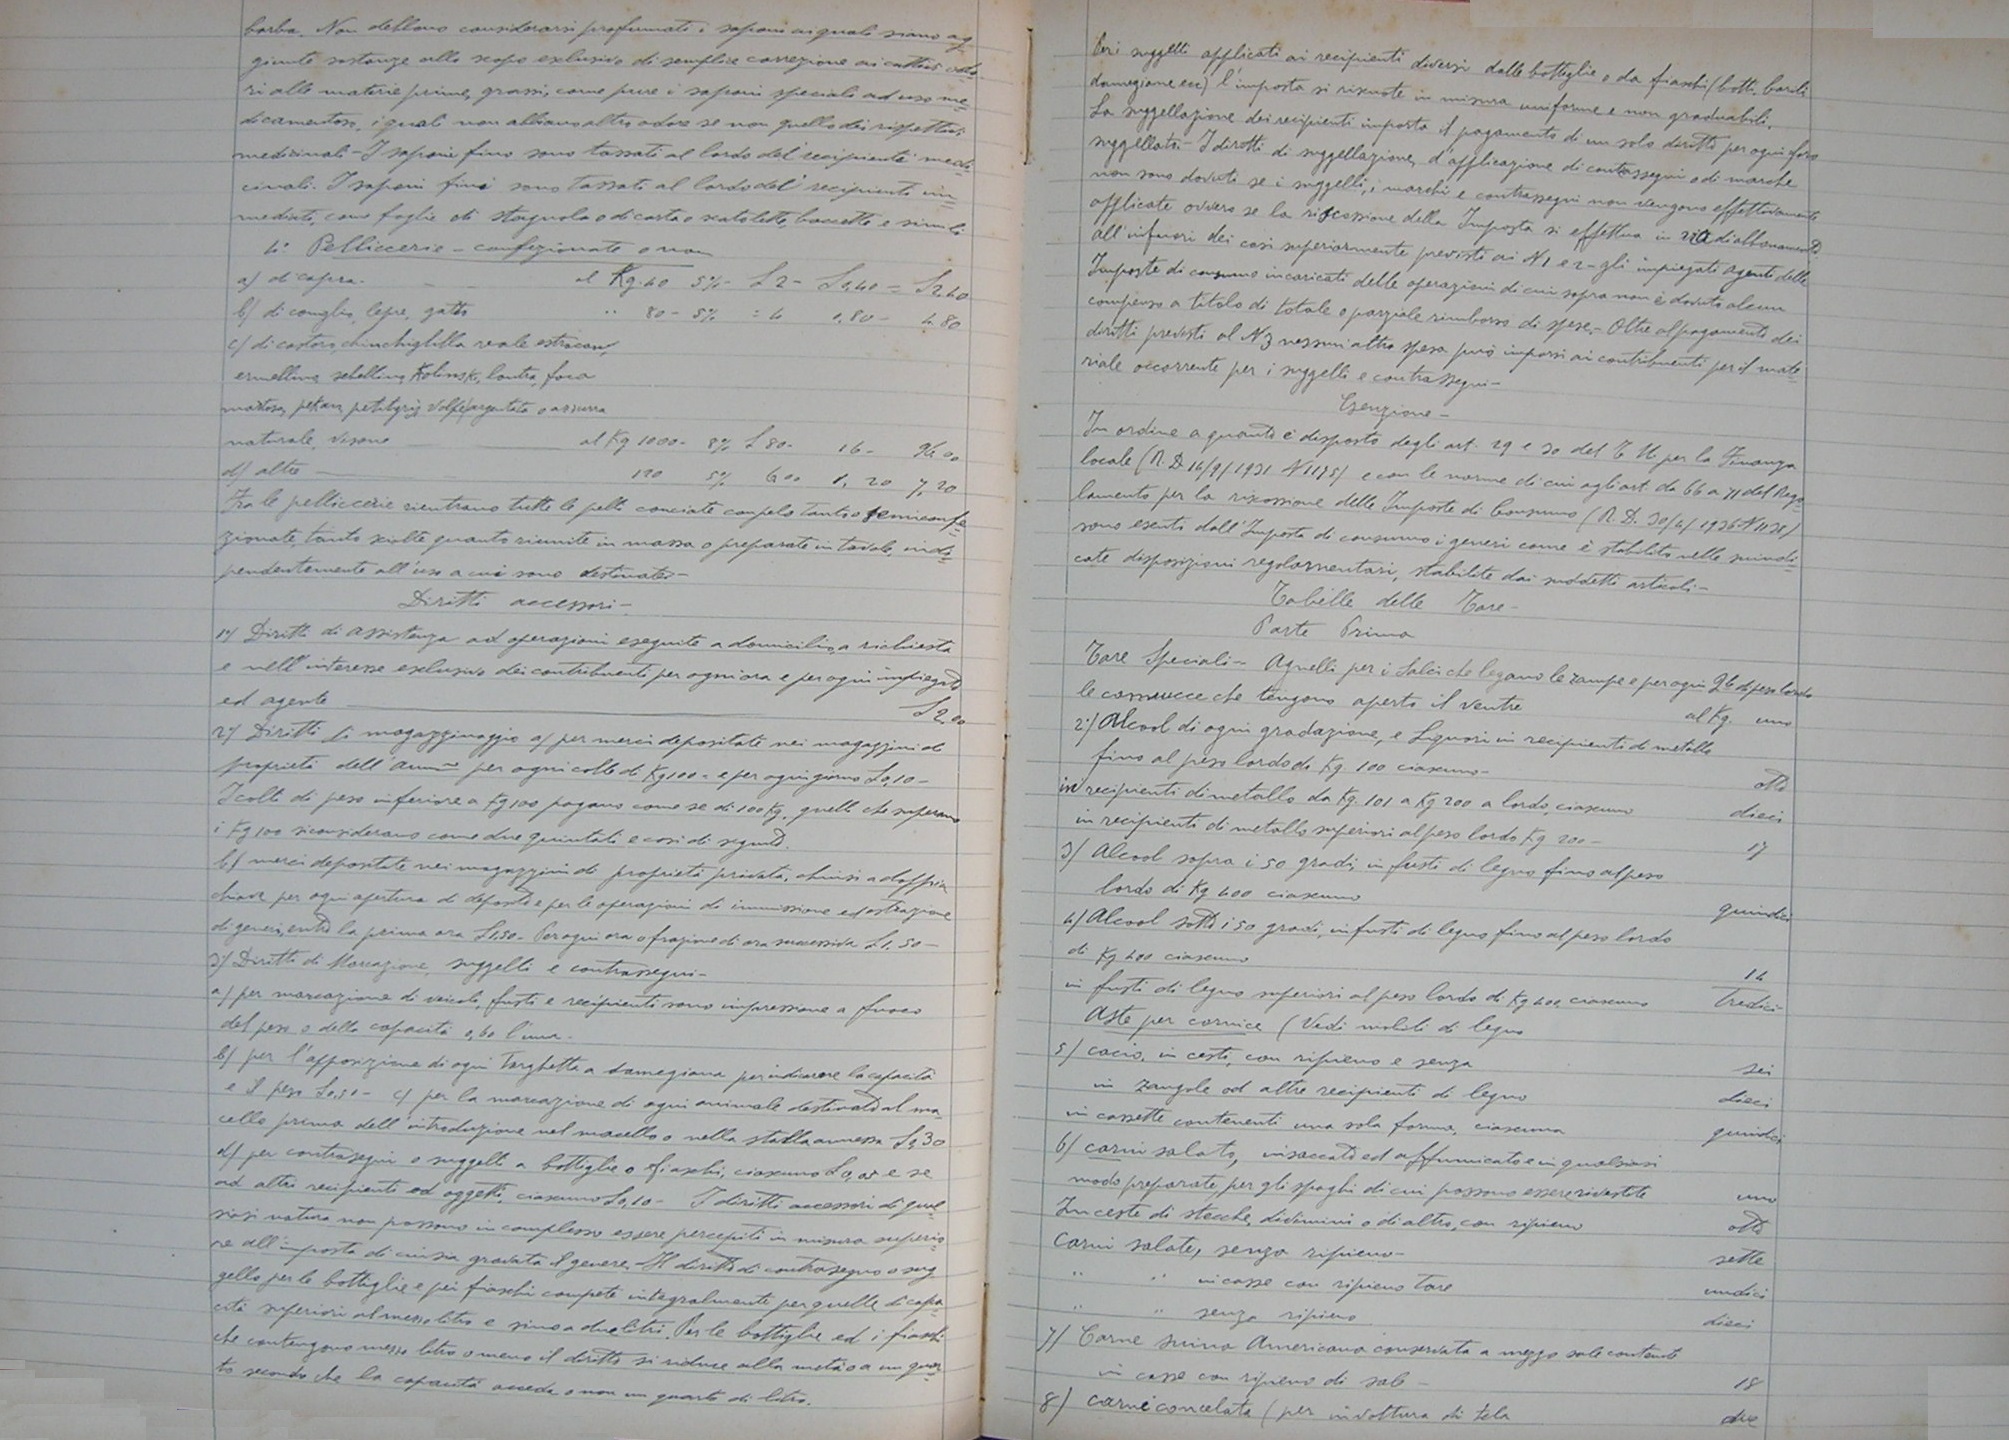 barba. Non debbono considerarsi profumati i saponi ai quali siano ag-
giunte sostanze allo scopo esclusivo di semplice correzione ai cattivi odo-
ri alle materie prime, grassi, come pure i saponi speciali ad uso me-
dicamentoso, i quali non abbiano altro odore se non quello dei rispettivi
medicinali - I saponi fino sono tassati al lordo del recipiente medi-
cinali. I saponi fini sono tassati al lordo del recipiente im-
mediato, come foglie di stagnola o di carta o scatolette, boccette e simili
4° Pelliccerie - confezionate o non
a) di capra. al Kg. 40 5%- L 2- L 0,40 = L 2,40
b) di coniglio, lepre, gatto " 80- 5% : 4 0,80- 4.80
c) di castoro, chinchiglilla reale astracan,
ermellino, zibellino, Kolinski, lontra, foca
martora, pekan, petitgrig, volpe argentata o azzurra
naturale, visone al Kg 1000- 8% L 80- 16- 96.00
d) altre 120 5% 6.00 1,20 7,20
Fra le pelliccerie rientrano tutte le pelli conciate con pelo tanto o semiconfe-
zionate, tanto sciolte quanto riunite in massa o preparate in tavole, indi-
pendentemente all'uso a cui sono destinate-
Diritti accessori-
1°) Diritti di assistenza ad operazioni eseguite a domicilio, a richiesta
e nell'interesse esclusivo dei contribuenti per ogni ora e per ogni impiegato
ed agente L 2,00
2°) Diritti di magazzinaggio a) per merci depositate nei magazzini di
proprietà dell'Amm.ne per ogni collo di Kg 100= e per ogni giorno L 0,10-
I colli di peso inferiore a Kg 100 pagano come se di 100 Kg, quelli che superano
i Kg 100 si considerano come due quintali e così di seguito.
b) merci depositate nei magazzini di proprietà privata, chiusi a doppia
chiave per ogni apertura di deposito e per le operazioni di immissione ed estrazione
di generi, entro la prima ora L 1,50- Per ogni ora o frazione di ora successiva L 1,50-
3°) Diritti di Marcazione, suggelli e contrassegni-
a) per marcazione di veicoli, fusti e recipienti sono impressione a fuoco
del peso o della capacità 0,60 l'una.
b) per l'apposizione di ogni targhetta a damegiana per indicare la capacità
e il peso L 0,50- c) per la marcazione di ogni animale destinato al ma-
cello prima dell'introduzione nel macello o nella stalla annessa L 0,30
d) per contrasegni o suggelli a bottiglie o fiaschi, ciascuno L 0,05 e se
ad altri recipienti ed oggetti, ciascuno L 0,10- I diritti accessori di qual-
siasi natura non possono in complesso essere percepiti in misura superio-
re all'imposta di cui sia gravato il genere. Il diritto di contrasegno o sug
gello per le bottiglie e pei fiaschi compete integralmente per quelle di capa-
cità superiori al mezzo litro e sino a due litri. Per le bottiglie ed i fiaschi
che contengono mezzo litro o meno il diritto si riduce alla metà o a un quar-
to secondo che la capacità ecceda o non un quarto di litro.
Per i suggelli applicati ai recipienti diversi dalle bottiglie o da fiaschi (botti, barili
damegiane ecc) l'imposta si riscuote in misura uniforme e non graduabili.
La suggellazione dei recipienti importa il pagamento di un solo diritto per ogni foro
suggellato- I diritti di suggellazione, d'applicazione di contrassegni o di marche
non sono dovuti se i suggelli, i marchi e contrassegni non vengono effettivamente
applicate ovvero se la riscossione della Imposta si effettua in via di abbonamento.
All'infuori dei casi superiormente previsti ai N 1 e 2- gli impiegati agenti delle
Imposte di consumo incaricati delle operazioni di cui sopra non è dovuto alcun
compenso a titolo di totale o parziale rimborso di spese.- Oltre al pagamento dei
diritti previsti al N 3 nessun altra spesa può imporsi ai contribuenti per il mate-
riale occorrente per i suggelli e contrassegni-
Esenzione-
In ordine a quanto è disposto degli art. 29 e 30 del T.U. per la Finanza
locale (R.D. 14/9/1931 N 1175) e con le norme di cui agli art. da 66 a 71 del Rego-
lamento per la riscossione delle Imposte di Consumo (R.D. 30/4/1936 N 1138)
sono esenti dall'Imposta di consumo i generi come è stabilito nelle suindi-
cate disposizioni regolamentari, stabilite dai suddetti articoli-
Tabelle delle Tare-
Parte Prima
Tare Speciali- Agnelli per i salci che legano le zampe e per ogni Q.le di peso lordo
le cannucce che tengono aperto il ventre al Kg. uno
2°) Alcool di ogni gradazione, e Liquori in recipienti di metallo
fino al peso lordo di Kg. 100 ciascuno- otto
in recipienti di metallo da Kg. 101 a Kg 200 a lordo, ciascuno dieci
in recipienti di metallo superiori al peso lordo Kg 200- 17
3) Alcool sopra i 50 gradi, in fusti di legno fino al peso
lordo di Kg 400 ciascuno quindici
4) Alcool sotto i 50 gradi, in fusti di legno fino al peso lordo
di Kg 400 ciascuno 14
in fusti di legno superiori al peso lordo di Kg 400, ciascuno tredici
Aste per cornice (Vedi mobili di legno
5) cacio, in cesti, con ripieno e senza sei
in zangole od altre recipienti di legno dieci
in cassette contenenti una sola forma, ciascuna quindici
6) carni salate, insaccate ed affumicate e in qualsiasi
modo preparate, per gli spaghi di cui possono essere rivestite uno
In ceste di stecche, di vimini o di altro, con ripieno otto
Carni salate, senza ripieno- sette
" " in casse con ripieno tare undici
" " senza ripieno dieci
7) Carne suina Americana conservata a mezzo sale contenute
in casse con ripieno di sale- 18
8) carni concelata (per involtura di tela due